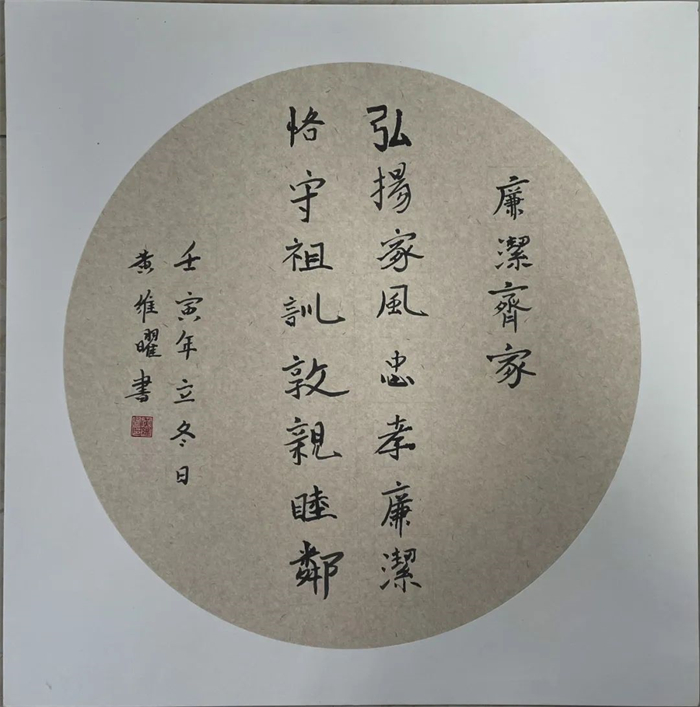 廉潔齊家
弘揚家風忠孝廉潔
恪守祖訓敦親睦鄰
壬寅年立冬日
黄維曜書